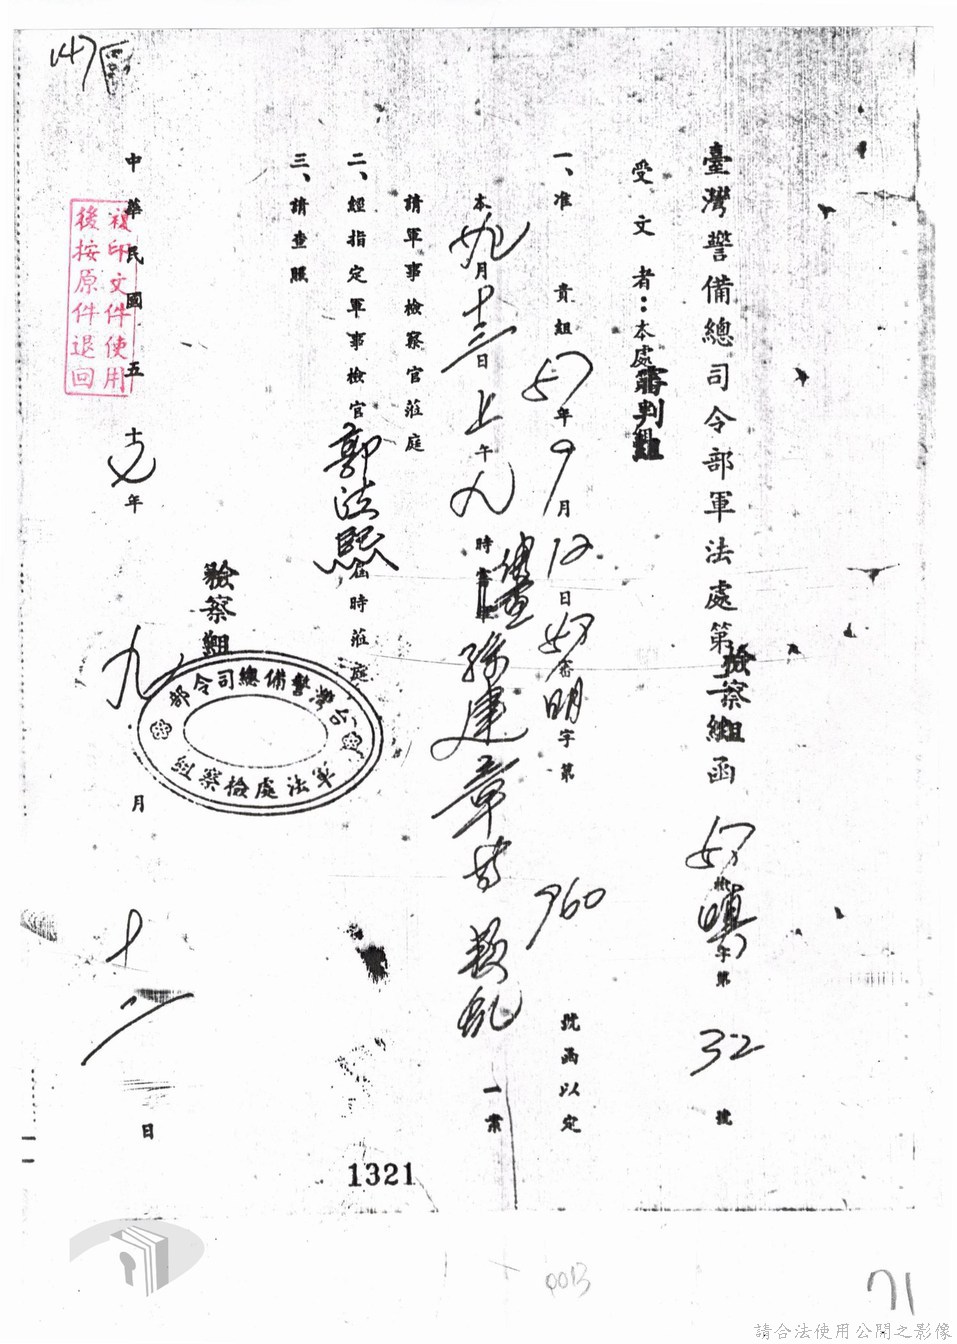 臺灣警備總司令部軍法處第檢察組函 檢 字第 32 號
受文者：本處審判組
一、准 貴組 57年9月12日 審明字第 760 號函以定
本九月十三日上午九時審 孫建章等叛亂一案
請軍事檢察官蒞庭
二、經指定軍事檢官郭法熙屆時蒞庭
三、請查照
檢察組
台灣警備總司令部
軍法處檢察組
中華民國五 年九月十二日
複印文件使用
後按原件退回
147
1321
0013
71
請合法使用公開之影像